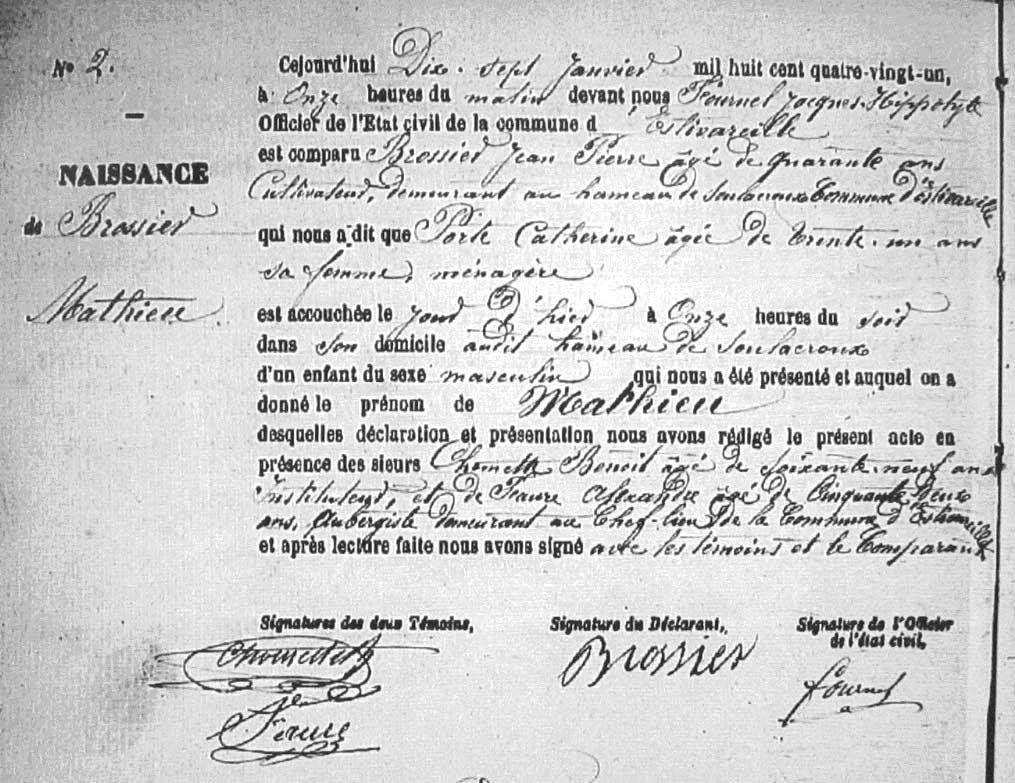 N° 2.
NAISSANCE
de Brossier
Mathieu
Cejourd'hui Dix-sept Janvier mil huit cent quatre-vingt-un,
à Onze heures du matin devant nous Fournel Jacques-Hippolyte
Officier de l'Etat civil de la commune d'Estivareille
est comparu Brossier Jean Pierre âgé de quarante ans
Cultivateur, demeurant au hameau de Soulacroux Commune d'Estivareille
qui nous a dit que Porte Catherine âgée de trente-un ans
sa femme, ménagère
est accouchée le jour d'hier à Onze heures du soir
dans son domicile audit hameau de Soulacroux
d'un enfant du sexe masculin qui nous a été présenté et auquel on a
donné le prénom de Mathieu
desquelles déclaration et présentation nous avons rédigé le présent acte en
présence des sieurs Benoit âgé de soixante-neuf ans
Instituteur, et de Faure Alexandre âgé de Cinquante deux
ans, Aubergiste demeurant au Chef-lieu de la Commune d'Estivareille
et après lecture faite nous avons signé avec les témoins et le Comparant
Signatures des deux Témoins,
Signature du Déclarant,
Signature de l'Officier
de l'état civil,
Brossier
Fournel
Faure